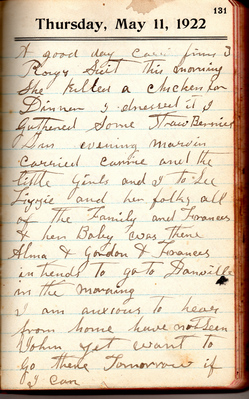 131
Thursday, May 11, 1922
A good day Carri finis 3
Rorgs Suit this morning
She killed a chicken for
Dinner I dressed it I
gathered Some Straw Berries
This evening marvin
carried cannie and the
little girls and I to See
Lizzie and her folks all
of the Family and Frances
& her Baby was there
Alma & Gordon & Frances
intends to go to Danville
in the morning
I am anxious to hear
from home have not Seen
John yet want to
go there Tomorrow if
I can